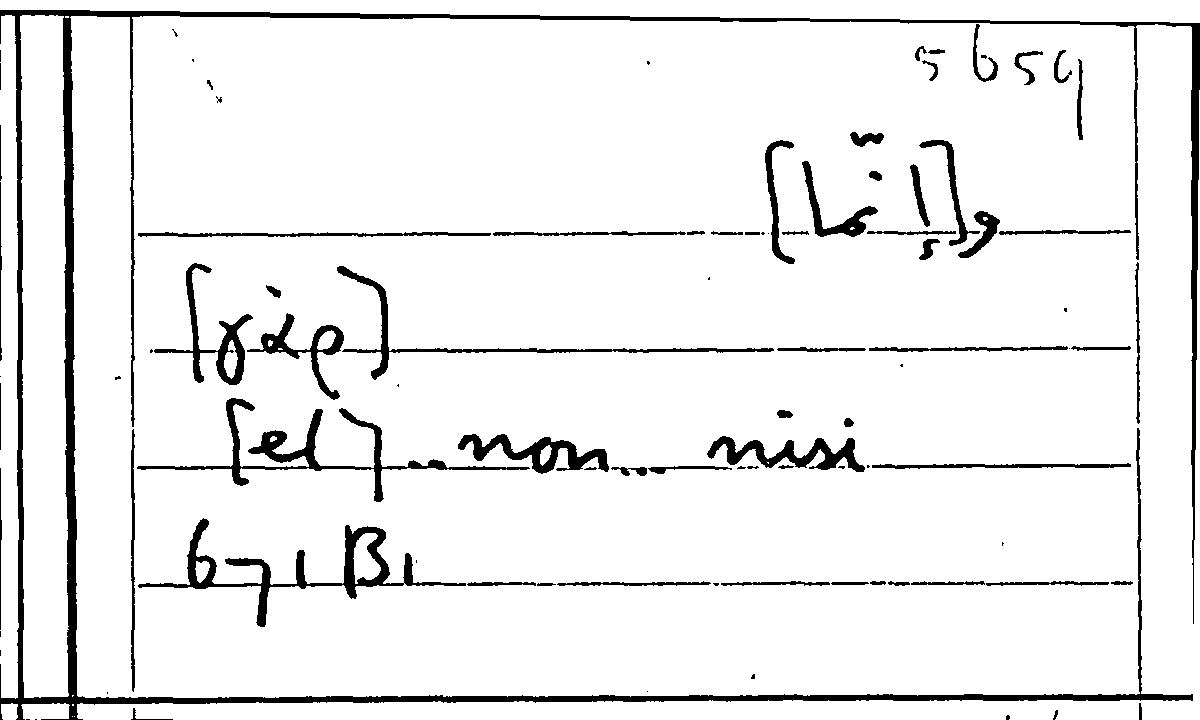 5659
و[إنّما]
[γὰρ]
... non ... nisi
671 B1